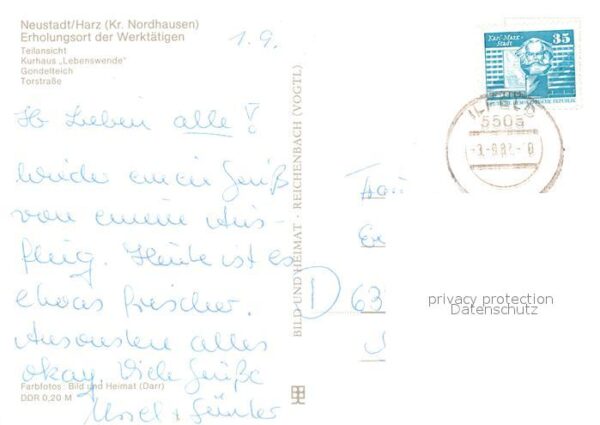 Neustadt/Harz (Kr. Nordhausen)
Erholungsort der Werktätigen
Teilansicht
Kurhaus „Lebenswende"
Gondelteich
Torstraße
1.9.
Ihr Lieben alle!
wieder einen Gruß
von einem Aus-
flug. Heute ist es
etwas frischer.
Ansonsten alles
okay. Viele Grüße
Ursel + Günter
Farbfotos: Bild und Heimat (Darr)
DDR 0,20 M
BILD UND HEIMAT · REICHENBACH (VOGTL)
Karl-Marx-
Stadt
35
DEUTSCHE DEMOKRATISCHE REPUBLIK
ILFELD
5505
D 63
privacy protection
Datenschutz